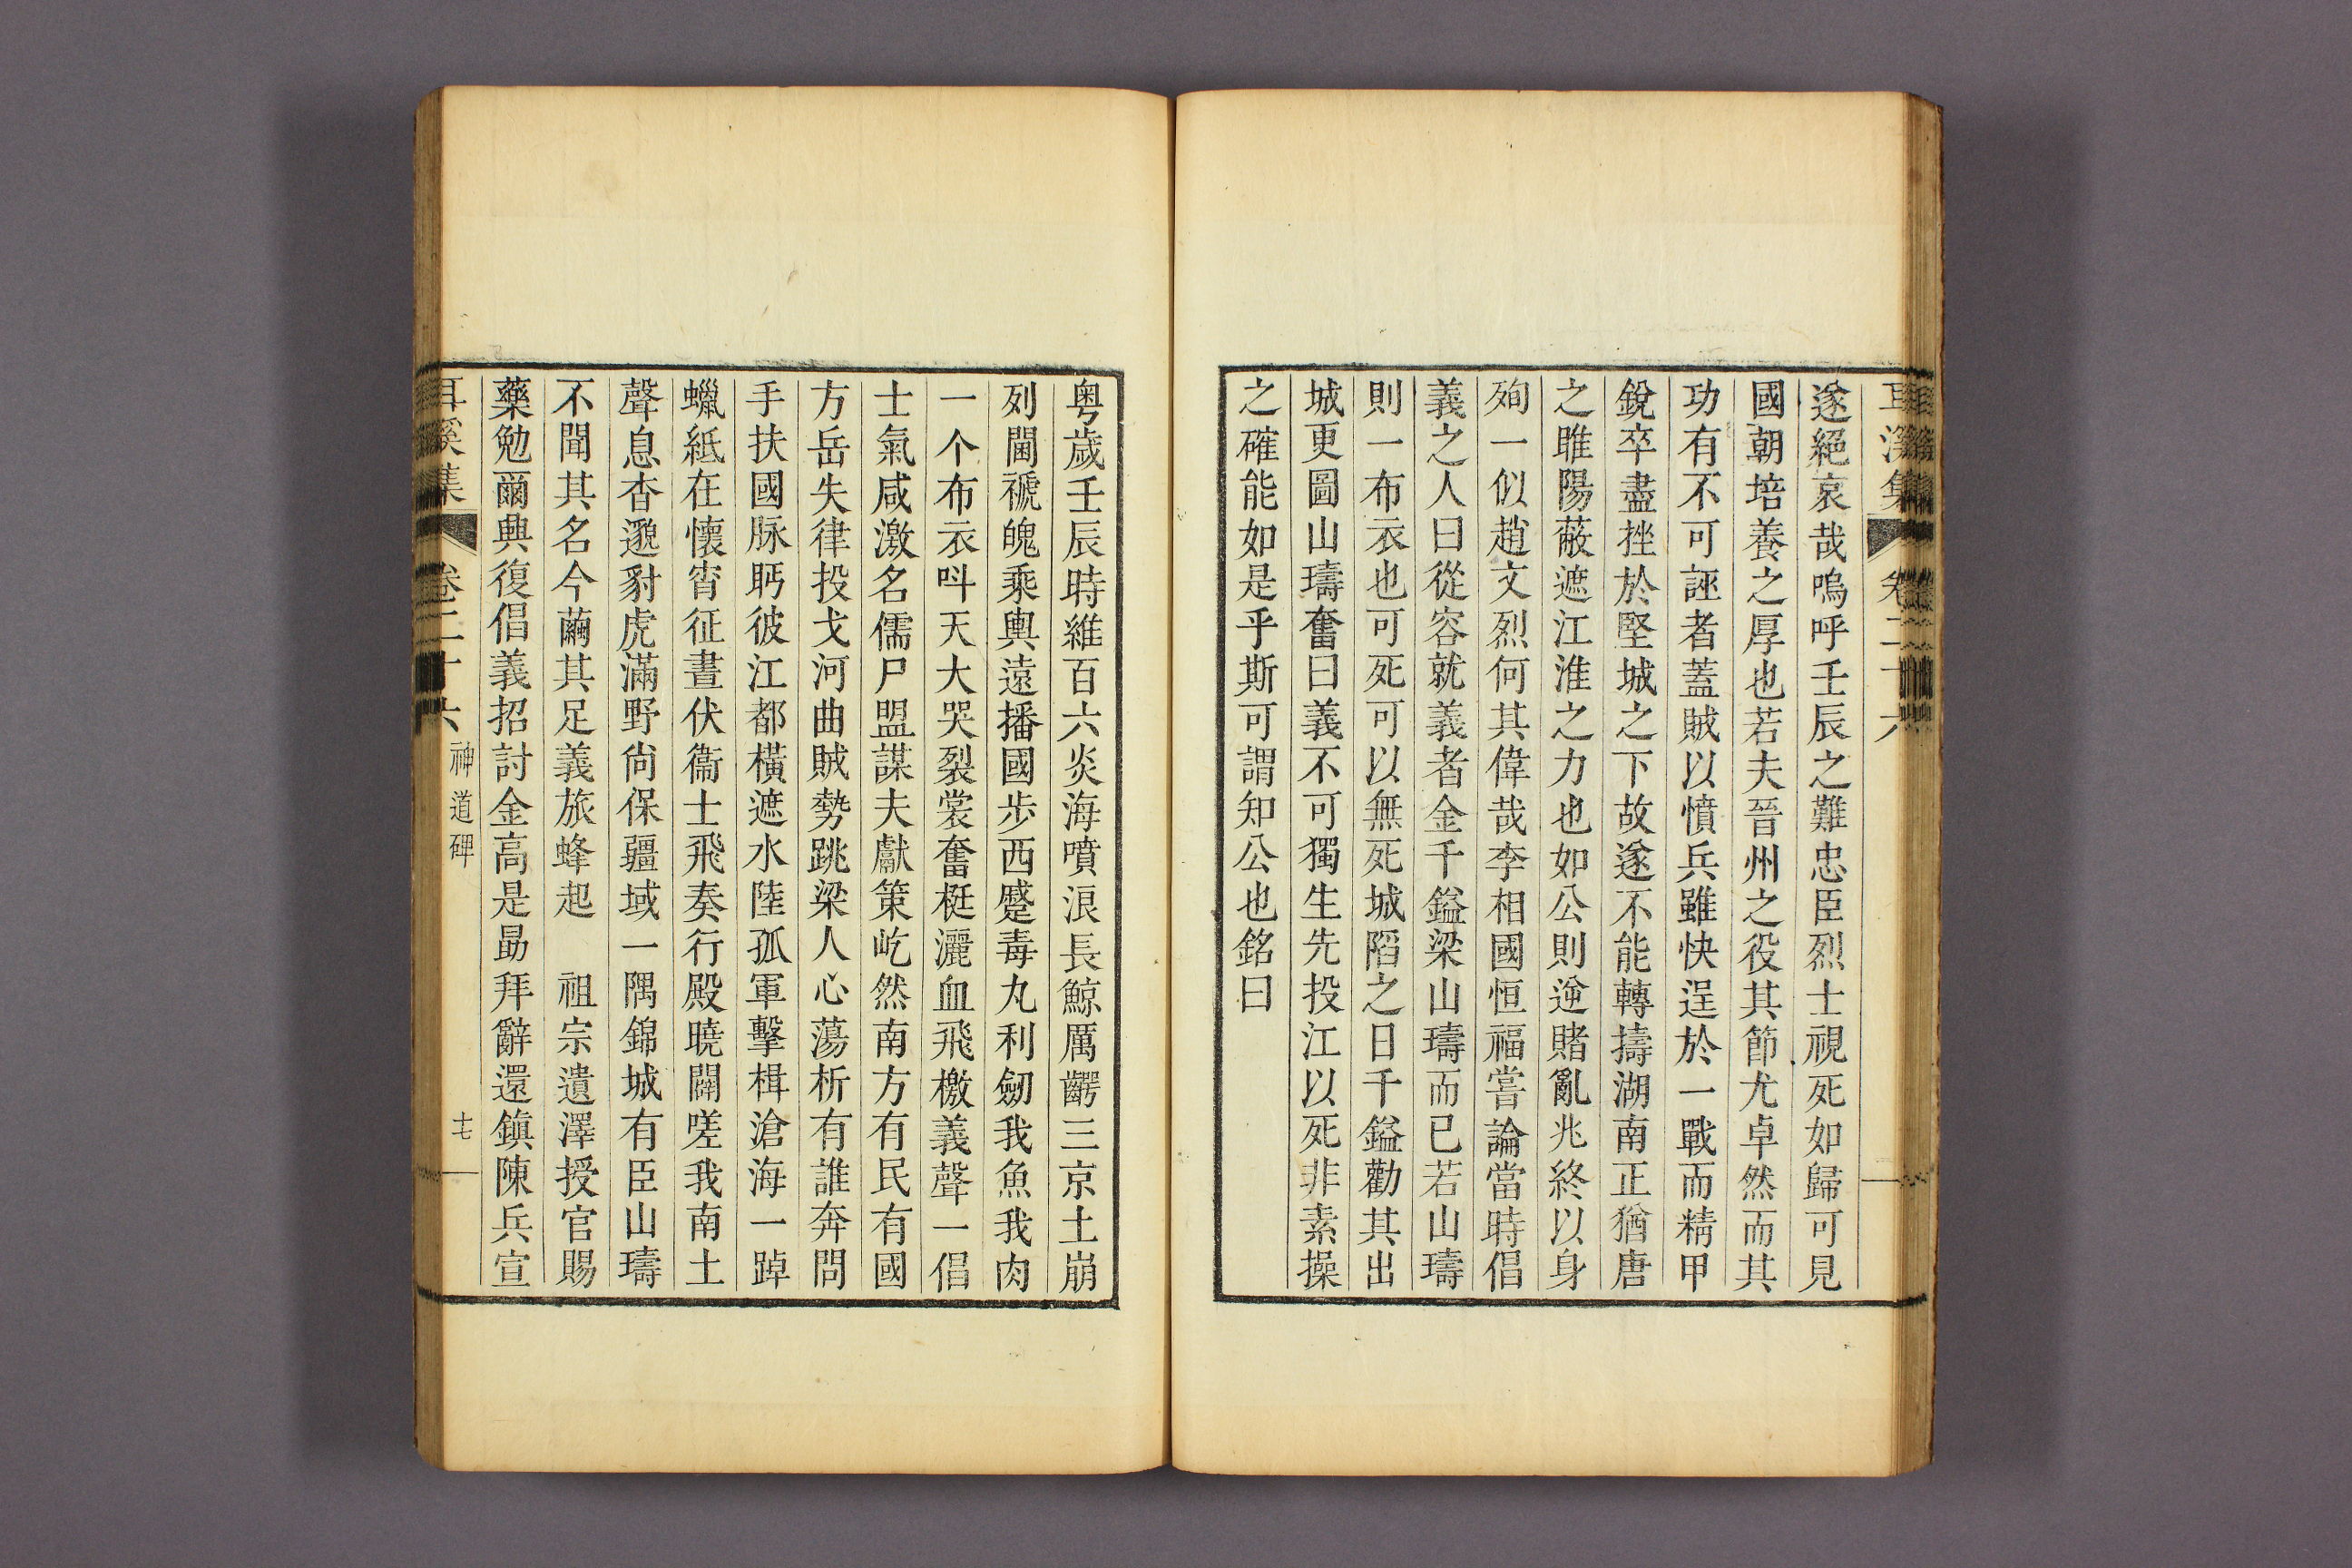 耳溪集 卷二十六
遂絕哀哉嗚呼壬辰之難忠臣烈士視死如歸可見
國朝培養之厚也若夫晉州之役其節尤卓然而其
功有不可誣者蓋賊以憤兵雖快逞於一戰而精甲
銳卒盡挫於堅城之下故遂不能轉擣湖南正猶唐
之睢陽蔽遮江淮之力也如公則逆賭亂兆終以身
殉一似趙文烈何其偉哉李相國恒福嘗論當時倡
義之人曰從容就義者金千鎰梁山璹而已若山璹
則一布衣也可死可以無死城陷之日千鎰勸其出
城更圖山璹奮曰義不可獨生先投江以死非素操
之確能如是乎斯可謂知公也銘曰
粤歲壬辰時維百六炎海噴浪長鯨厲齶三京土崩
列閫褫魄乘輿遠播國步西蹙毒丸利劒我魚我肉
一个布衣呌天大哭裂裳奮梃灑血飛檄義聲一倡
士氣咸激名儒尸盟謀夫獻策屹然南方有民有國
方岳失律投戈河曲賊勢跳梁人心蕩析有誰奔問
手扶國脉眄彼江都橫遮水陸孤軍擊楫滄海一踔
蠟紙在懷宵征晝伏衞士飛奏行殿曉闢嗟我南土
聲息杳邈豺虎滿野尙保疆域一隅錦城有臣山璹
不聞其名今繭其足義旅蜂起 祖宗遺澤授官賜
藥勉爾興復倡義招討金高是勗拜辭還鎭陳兵宣
耳溪集 卷二十六 神道碑 十七